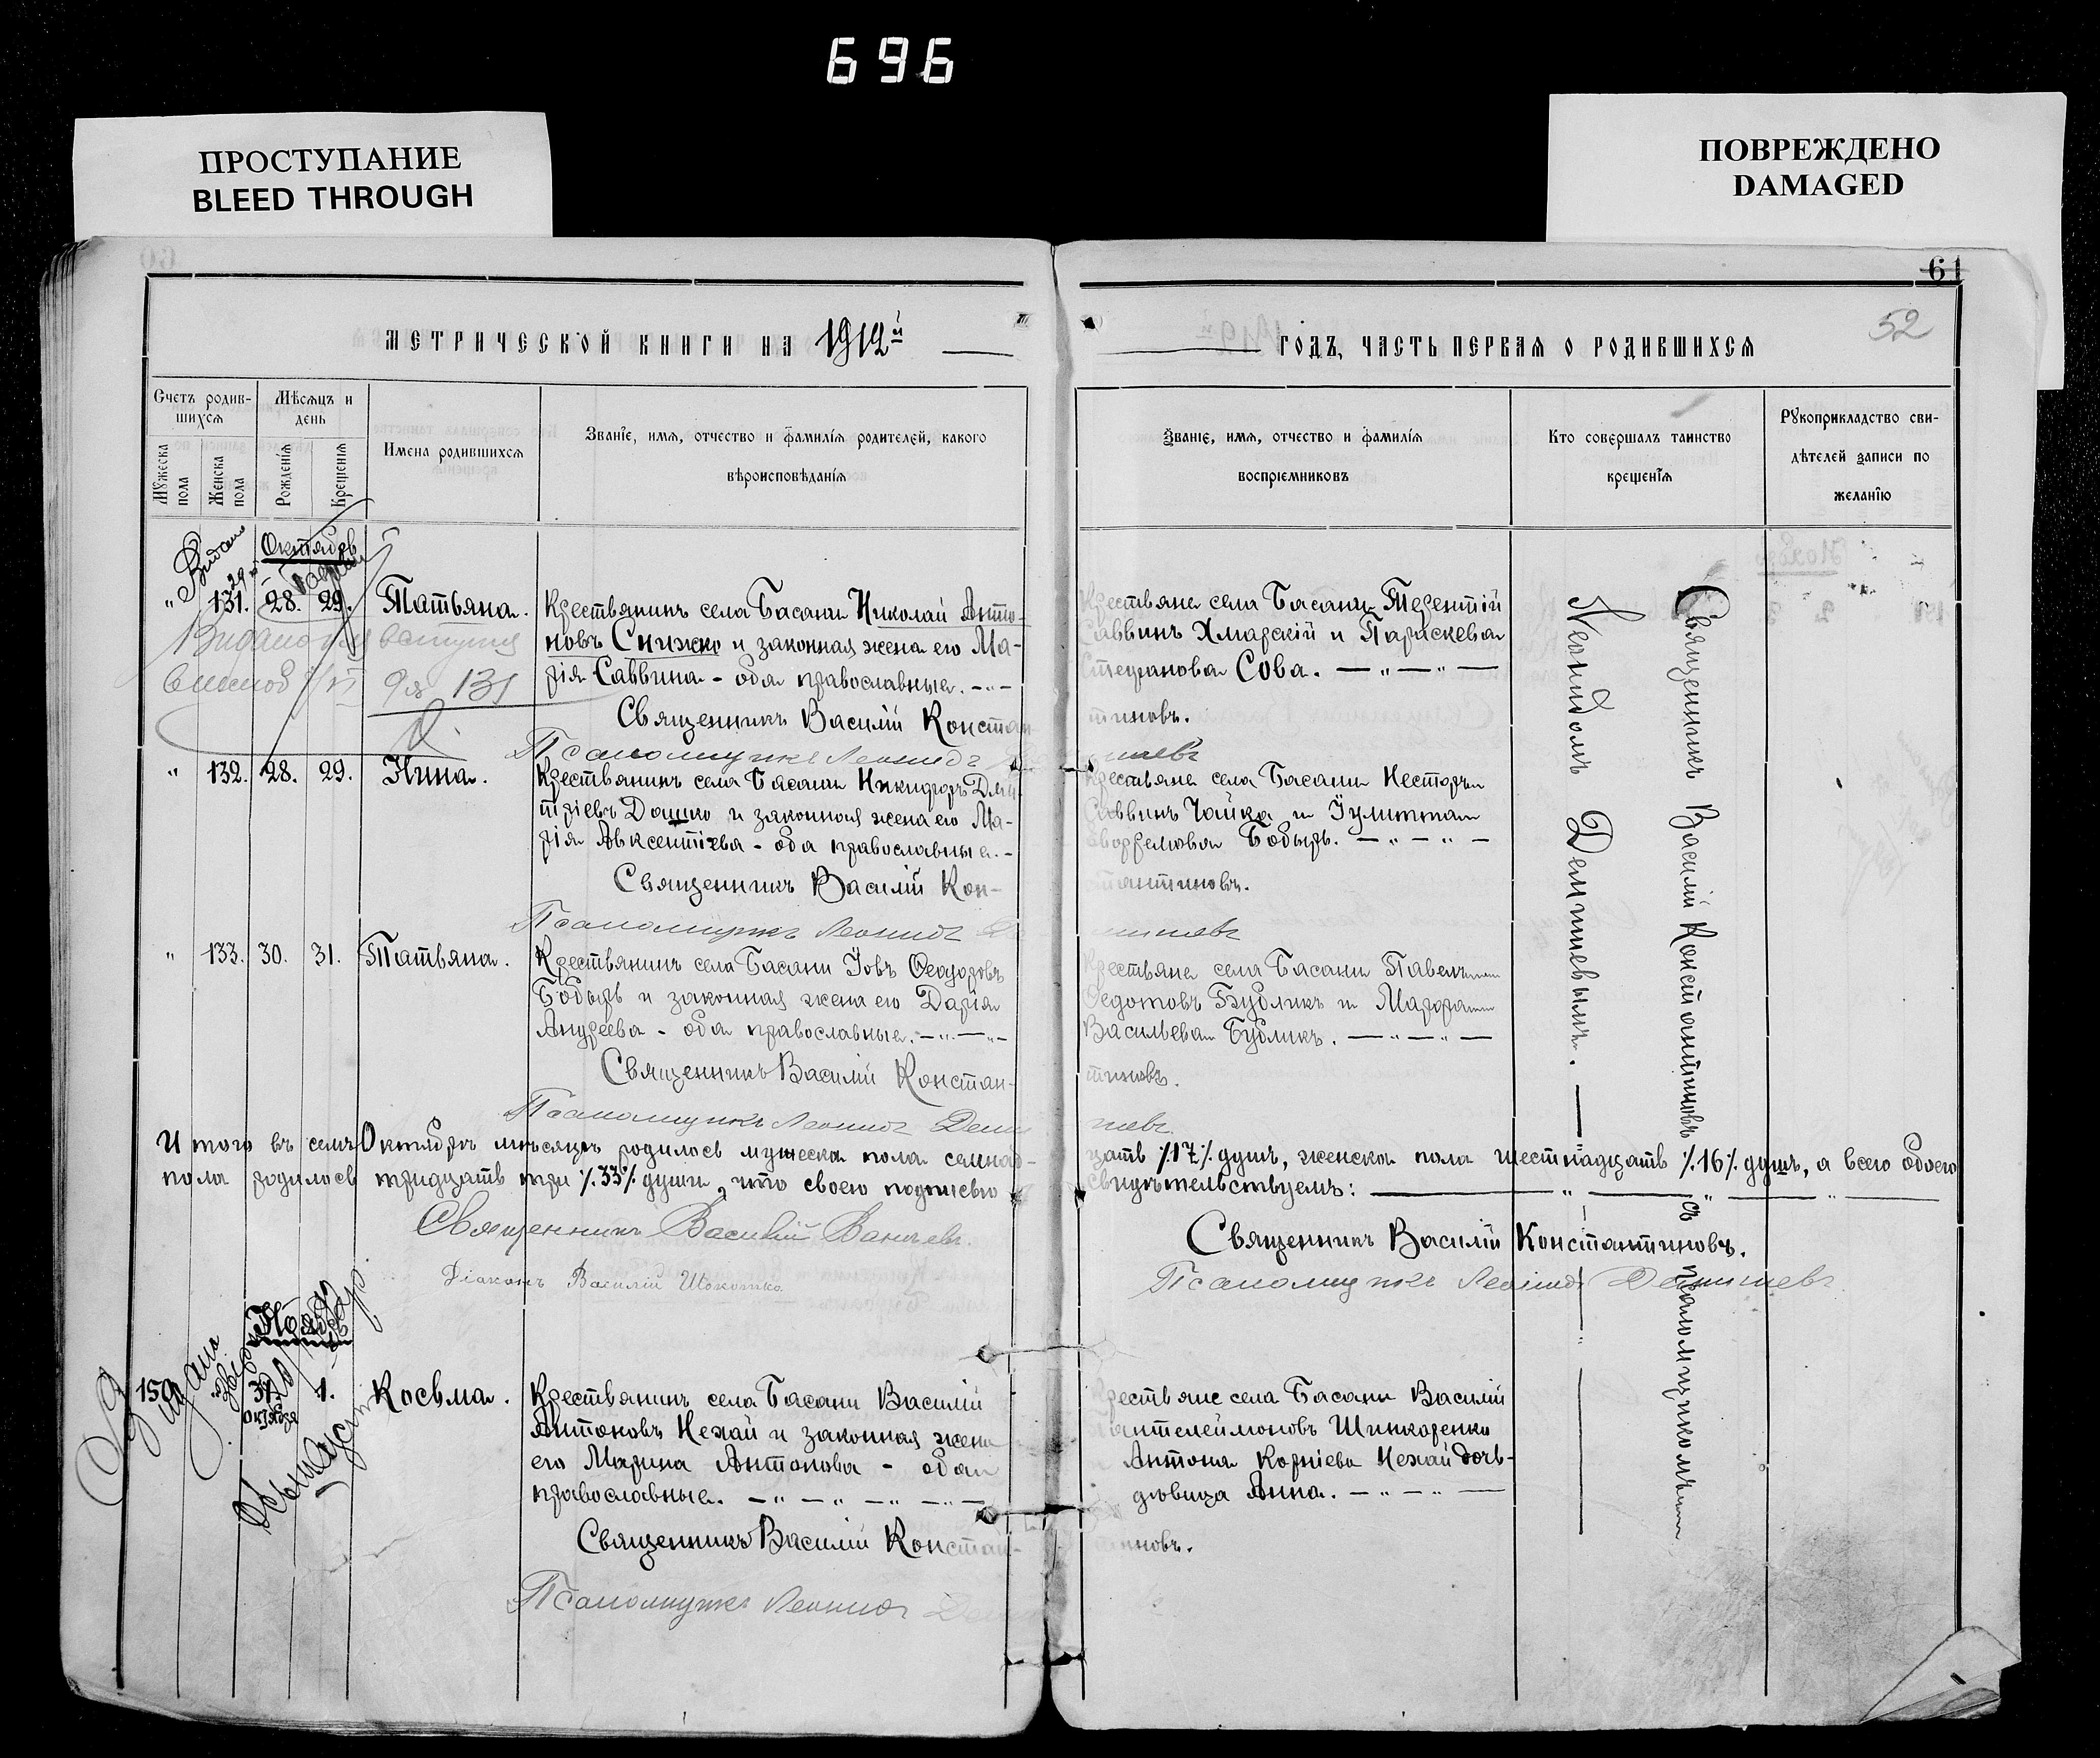 696
ПРОСТУПАНИЕ
BLEED THROUGH
ПОВРЕЖДЕНО
DAMAGED
61
52
МЕТРИЧЕСКОЙ КНИГИ НА 1912й
ГОДЪ, ЧАСТЬ ПЕРВАЯ О РОДИВШИХСЯ
Счетъ родив-
шихся
Мужеска пола
Женска пола
Мѣсяцъ и
день
Рожденія
Крещенія
Имена родившихся
Званіе, имя, отчество и фамилія родителей, какого
вѣроисповѣданія
Званіе, имя, отчество и фамилія
воспріемниковъ
Кто совершалъ таинство
крещенія
Рукоприкладство сви-
дѣтелей записи по
желанію
Октябрь
" 131. 28. 29. Татьяна.
Крестьянинъ села Басани Николай Анто-
новъ Снижко и законная жена его Ма-
рія Саввина - оба православные. - " -
Крестьяне села Басани Терентій
Саввинъ Хмарскій и Параскева
Стефанова Сова. — " — " —
Священникъ Василій Констан
тиновъ.
Псаломщикъ Леонидъ
131
" 132. 28. 29. Нина.
Крестьянинъ села Басани Никифоръ Дми-
тріевъ Дашко и законная жена его Ма-
рія Авксентіева - оба православные. -
Крестьяне села Басани Несторъ
Саввинъ Чайка и Іулитта
Бобырь. — " — " —
Священникъ Василій Кон-
стантиновъ.
Псаломщикъ Леонидъ
" 133. 30. 31. Татьяна.
Крестьянинъ села Басани Іовъ Ѳеодоровъ
Бобырь и законная жена его Дарія
Андреева - оба православные. — " — " —
Крестьяне села Басани Павелъ
Ѳедотовъ Бубликъ и Марфа
Васильева Бубликъ. — " — " —
Священникъ Василій Констан-
тиновъ.
Псаломщикъ Леонидъ Демишевъ
Итого въ семъ Октябрѣ мѣсяцѣ родилось мужеска пола семнад-
цать /.17./ душъ, женска пола шестнадцать /.16./ душъ, а всего обоего
пола родилось тридцать три /.33./ души, что своею подписью
свидѣтельствуемъ: — " — " — " —
Священникъ Василій
Діаконъ Василій
Священникъ Василій Константиновъ.
Псаломщикъ Леонидъ Демишевъ
Ноябрь
159 31 октября 1. Косьма.
Крестьянинъ села Басани Василій
Антоновъ Нехай и законная жена
его Марина Антонова - оба
православные. — " — " — " — " —
Крестьяне села Басани Василій
Пантелеймоновъ Шинкаренко
Антона Корніева Нехай дочь-
дѣвица Анна. — " — " —
Священникъ Василій Констан-
тиновъ.
Псаломщикъ Леонидъ
Священникъ Василій Константиновъ съ псаломщикомъ
Леонидомъ Демишевымъ.